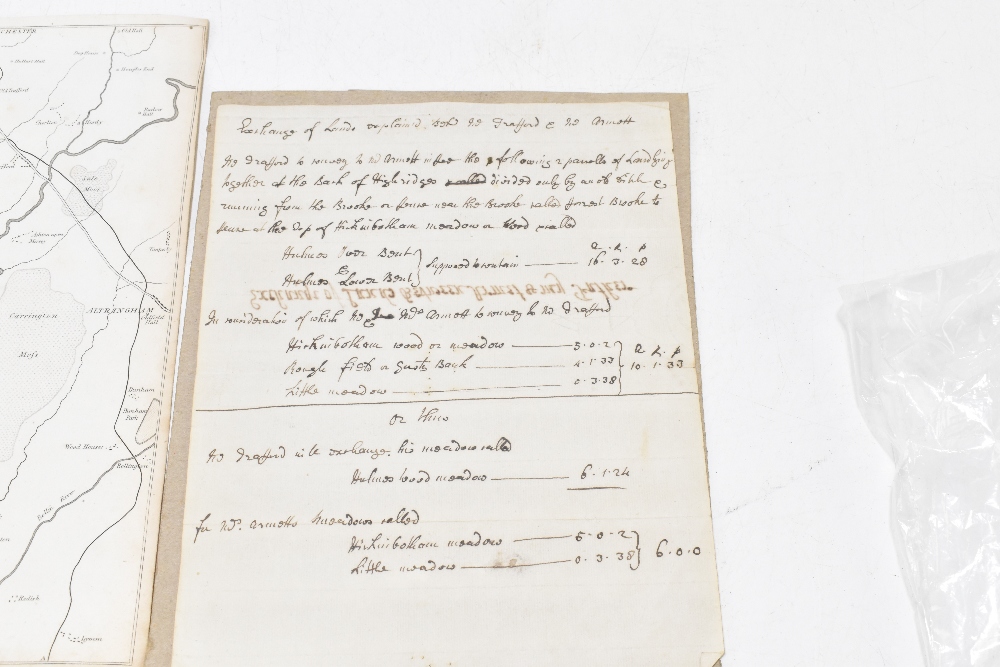 CHESTER
Old Hall
Hough End
Barlow Hall
Sale Moor
Timperley
Carrington
Moss
ALTRINGHAM
Dunham
Dunham Park
Wood Houses
Bollington
Bollin River
Exchange of Lands explained betw Mr Trafford & Mr Armett
Mr Trafford to convey to Mr Armett in fee the following 2 parcells of Land lying
together at the Back of Highridges called divided only by an old Ditch &
running from the Brooke or fence near the Brooke called Forrest Brooke to
fence at the Top of Hickinbotham meadow or Wood called
A. R. P
Hulmes Over Bent
Hulmes & Lower Bent
Supposed to contain 16. 3. 28
In consideration of which Mr & Mrs Armett to convey to Mr Trafford
Hickinbotham wood or meadow 5. 0. 2
A R P
Rough field or Bank 4. 1. 33
10. 1. 33
Little meadow 0. 3. 38
or thus
Mr Trafford will exchange his meadow called
Hulmes wood meadow 6. 1. 24
for Mr. Armetts meadows called
Hickinbotham meadow 5. 0. 2
Little meadow 0. 3. 38
6. 0. 0